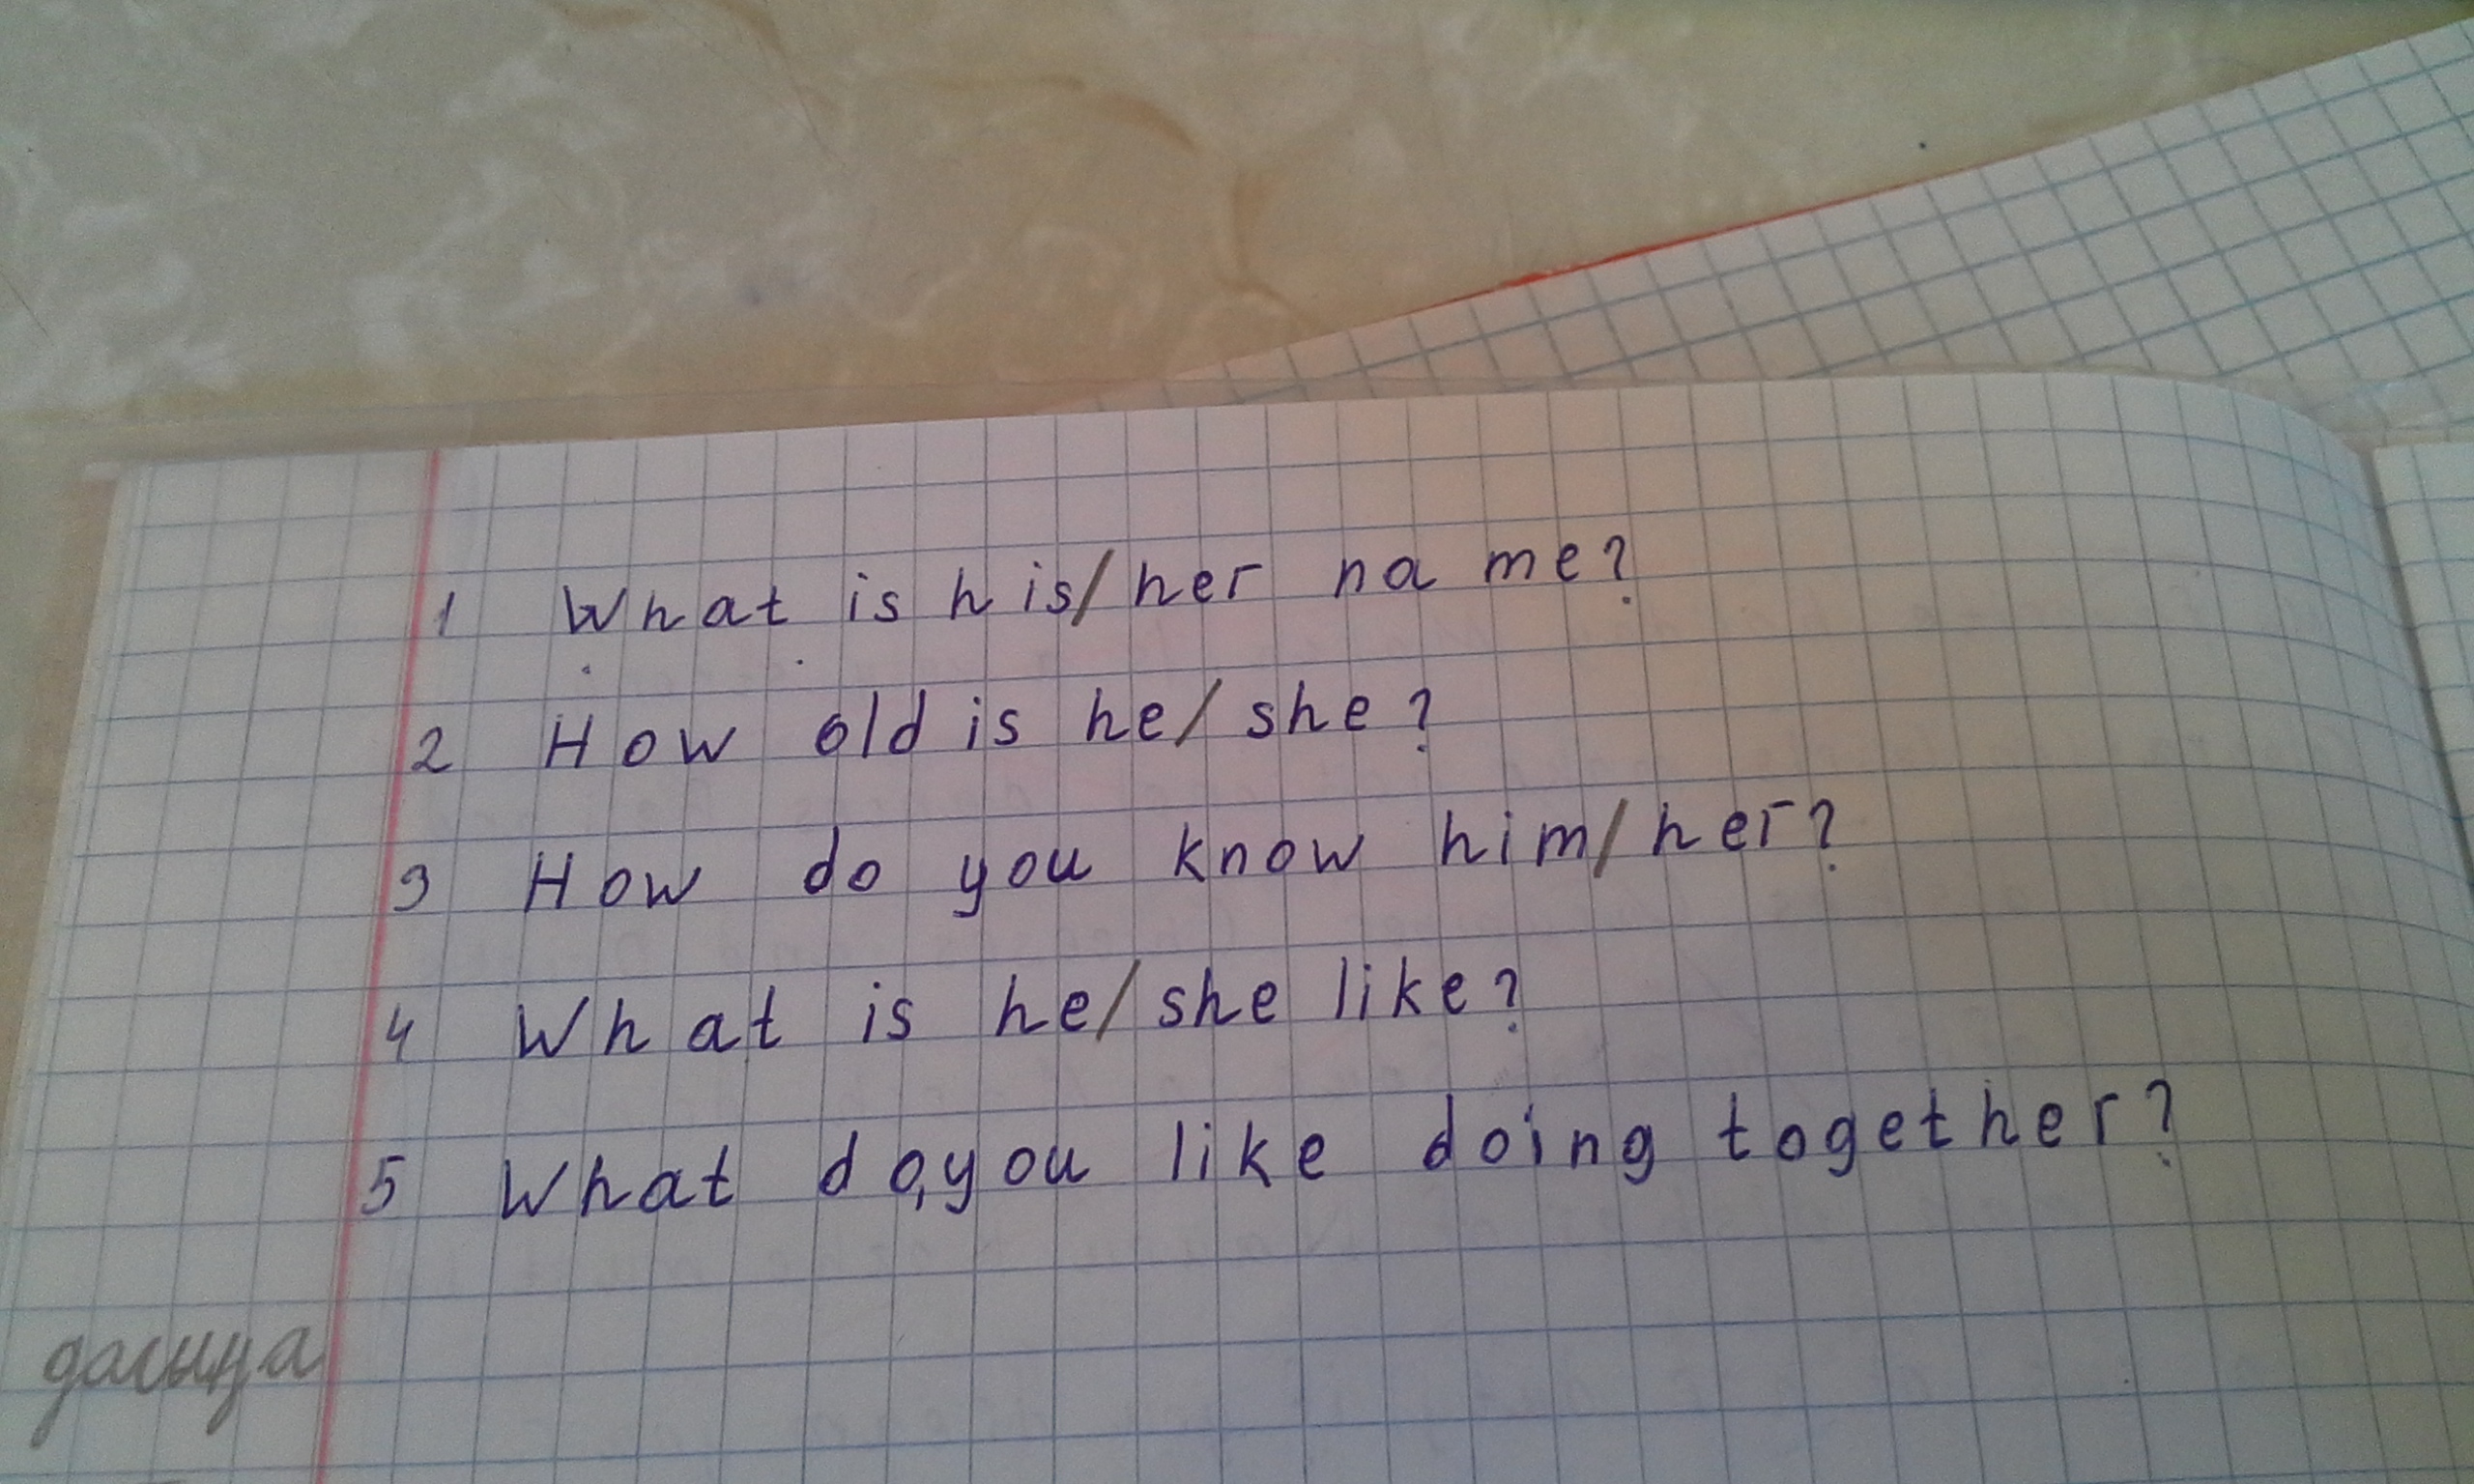 1 What is his/her name?
2 How old is he/she?
3 How do you know him/her?
4 What is he/she like?
5 What do, you like doing together?